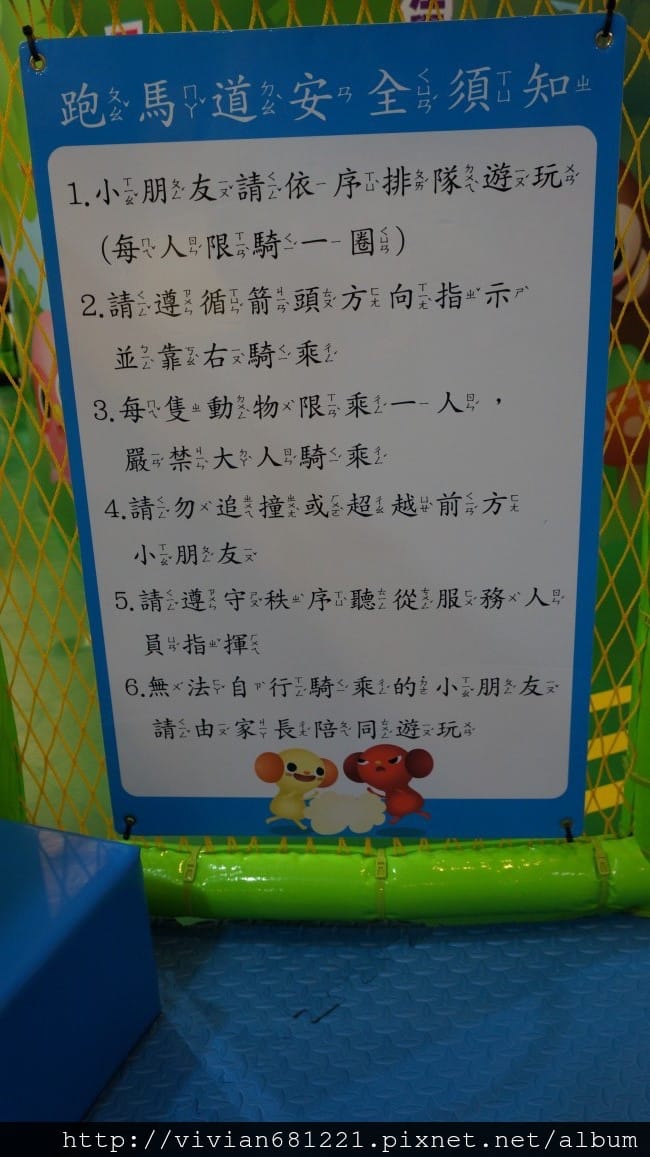 跑馬道安全須知
1.小朋友請依序排隊遊玩
(每人限騎一圈)
2.請遵循箭頭方向指示
並靠右騎乘
3.每隻動物限乘一人，
嚴禁大人騎乘
4.請勿追撞或超越前方
小朋友
5.請遵守秩序聽從服務人
員指揮
6.無法自行騎乘的小朋友
請由家長陪同遊玩
http://vivian681221.pixnet.net/album